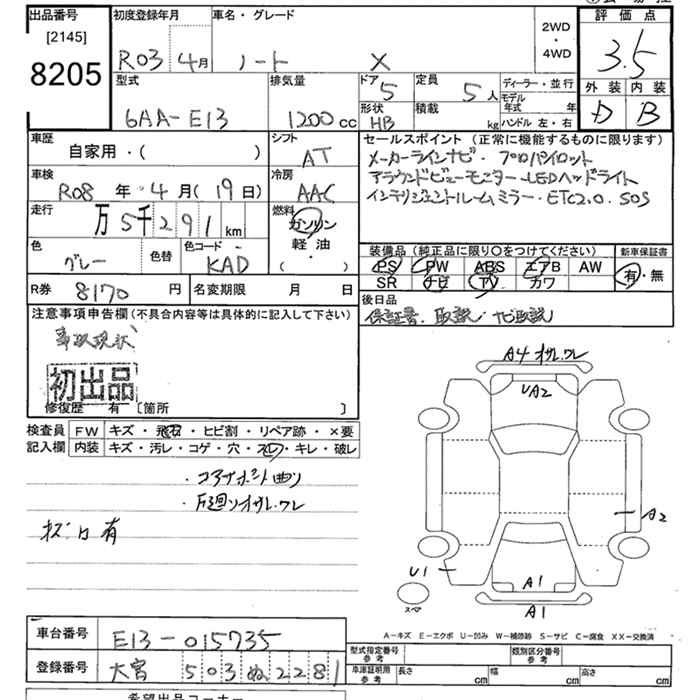 出品番号 初度登録年月 車名・グレード 2WD・4WD 評価点
[2145]
8205 R03 4月 ノート X 3.5
型式 排気量 ドア 5 定員 5人 ディーラー・並行 外装 内装
6AA-E13 1200cc 形状 HB 積載 kg モデル年式 年 ハンドル 左・右 D B
車歴 シフト セールスポイント (正常に機能するものに限ります)
自家用・( ) AT メーカーラインナビ・プロパイロット
車検 冷房 アラウンドビューモニター・LEDヘッドライト
R08年 4月(19日) AAC インテリジェントルームミラー・ETC2.0.SOS
走行 万5千291km 燃料 ガソリン
軽・油
( )
色 グレー 色替 色コード KAD
装備品 (純正品に限り○をつけてください) 新車保証書
PS PW ABS エアB AW 有・無
SR ナビ TV カワ
R券 8170円 名変期限 月 日
後日品
保証書、取説・ナビ取説
注意事項申告欄 (不具合内容等は具体的に記入して下さい)
事故現状
初出品
修復歴 有 [箇所 ]
A4 オサレ.ワレ
UA2
検査員 FW キズ・飛石・ヒビ割・リペア跡・×要
記入欄 内装 キズ・汚レ・コゲ・穴・スレ・キレ・破レ
・コアサポート曲リ
オサレ.ワレ
有
A2
U1
A1
スペア
A1
A-キズ E-エクボ U-凹み W-補修跡 S-サビ C-腐食 XX-交換済
車台番号 E13-015735
型式指定番号 参考 類別区分番号 参考
登録番号 大宮 503 ぬ 2281
車庫証明用 参考 長さ cm 幅 cm 高さ cm
希望出品コーナー